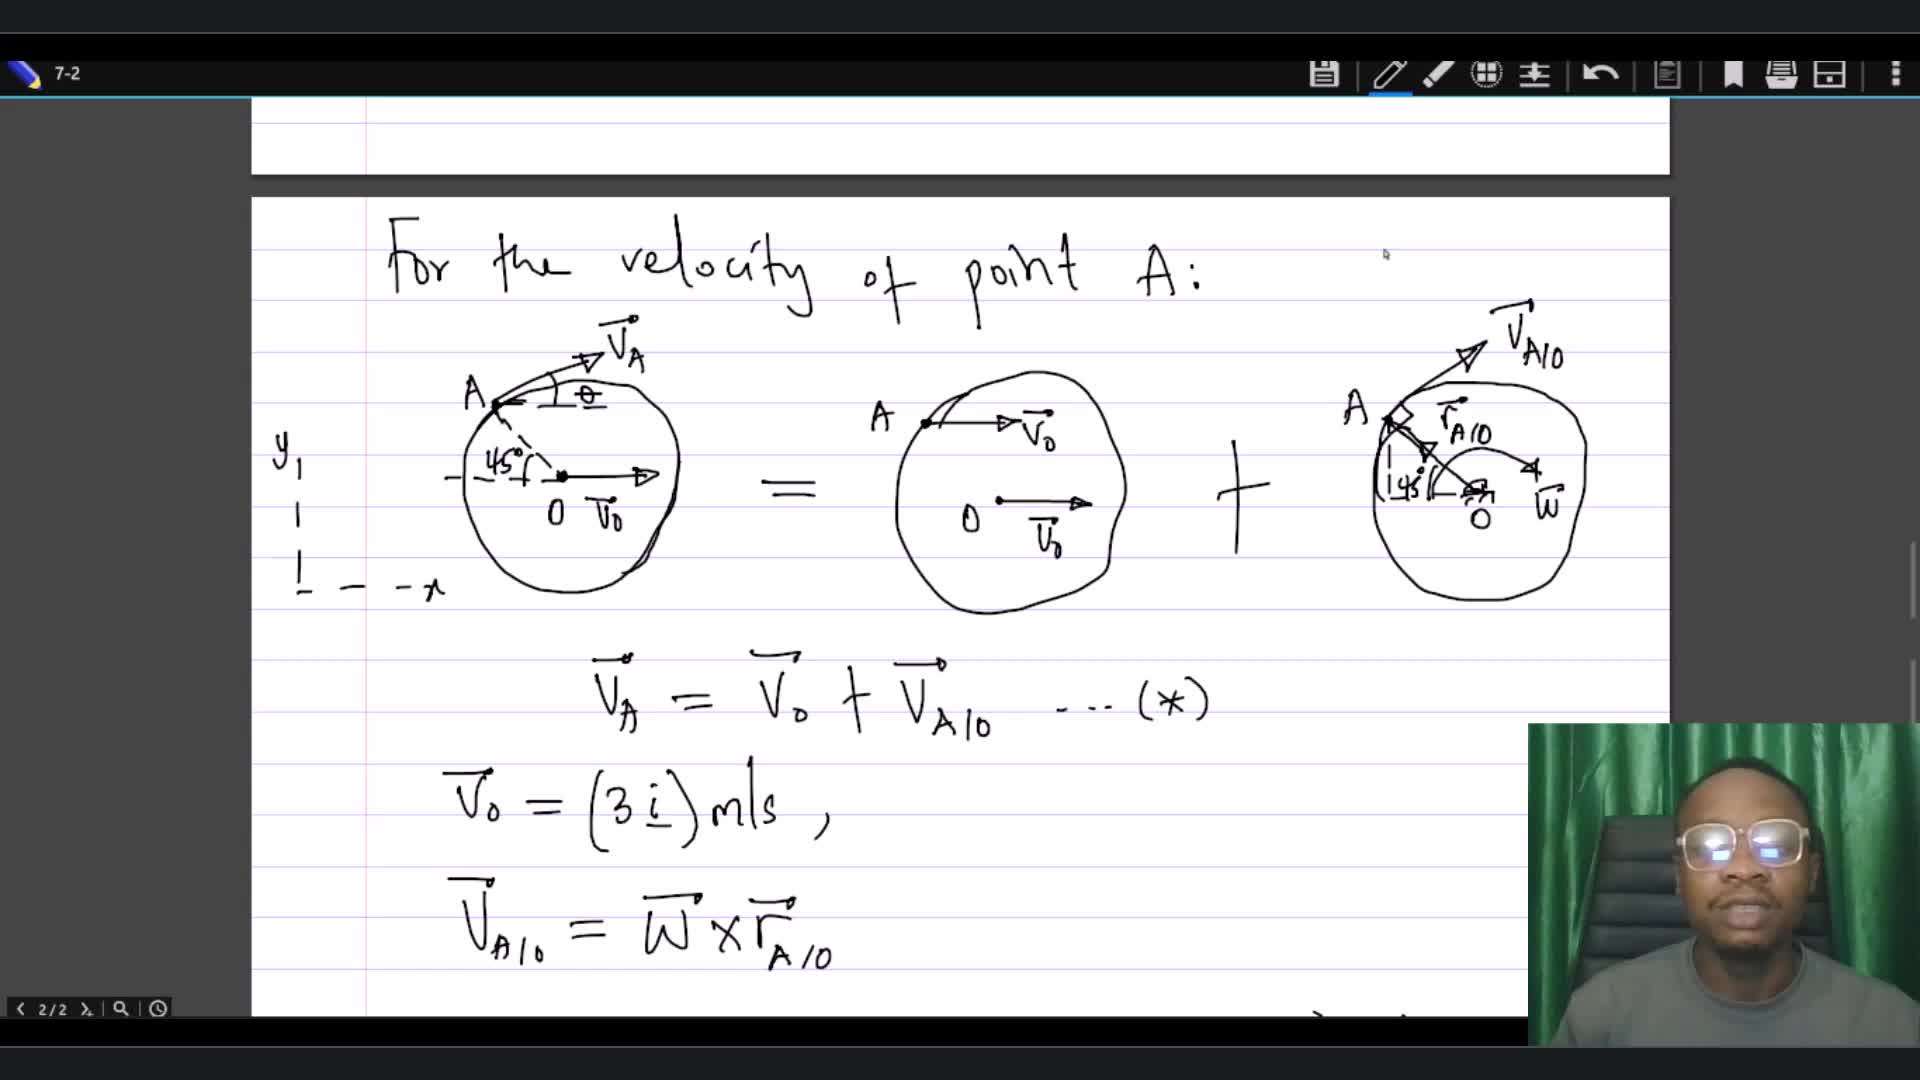 7-2
For the velocity of point A:
V_A
A
θ
45°
O
V_0
y
x
=
A
V_0
O
V_0
+
V_A/0
A
r_A/0
45°
O
w
V_A = V_0 + V_A/0 ... (*)
V_0 = (3 i) m/s ,
V_A/0 = w x r_A/0
2/2